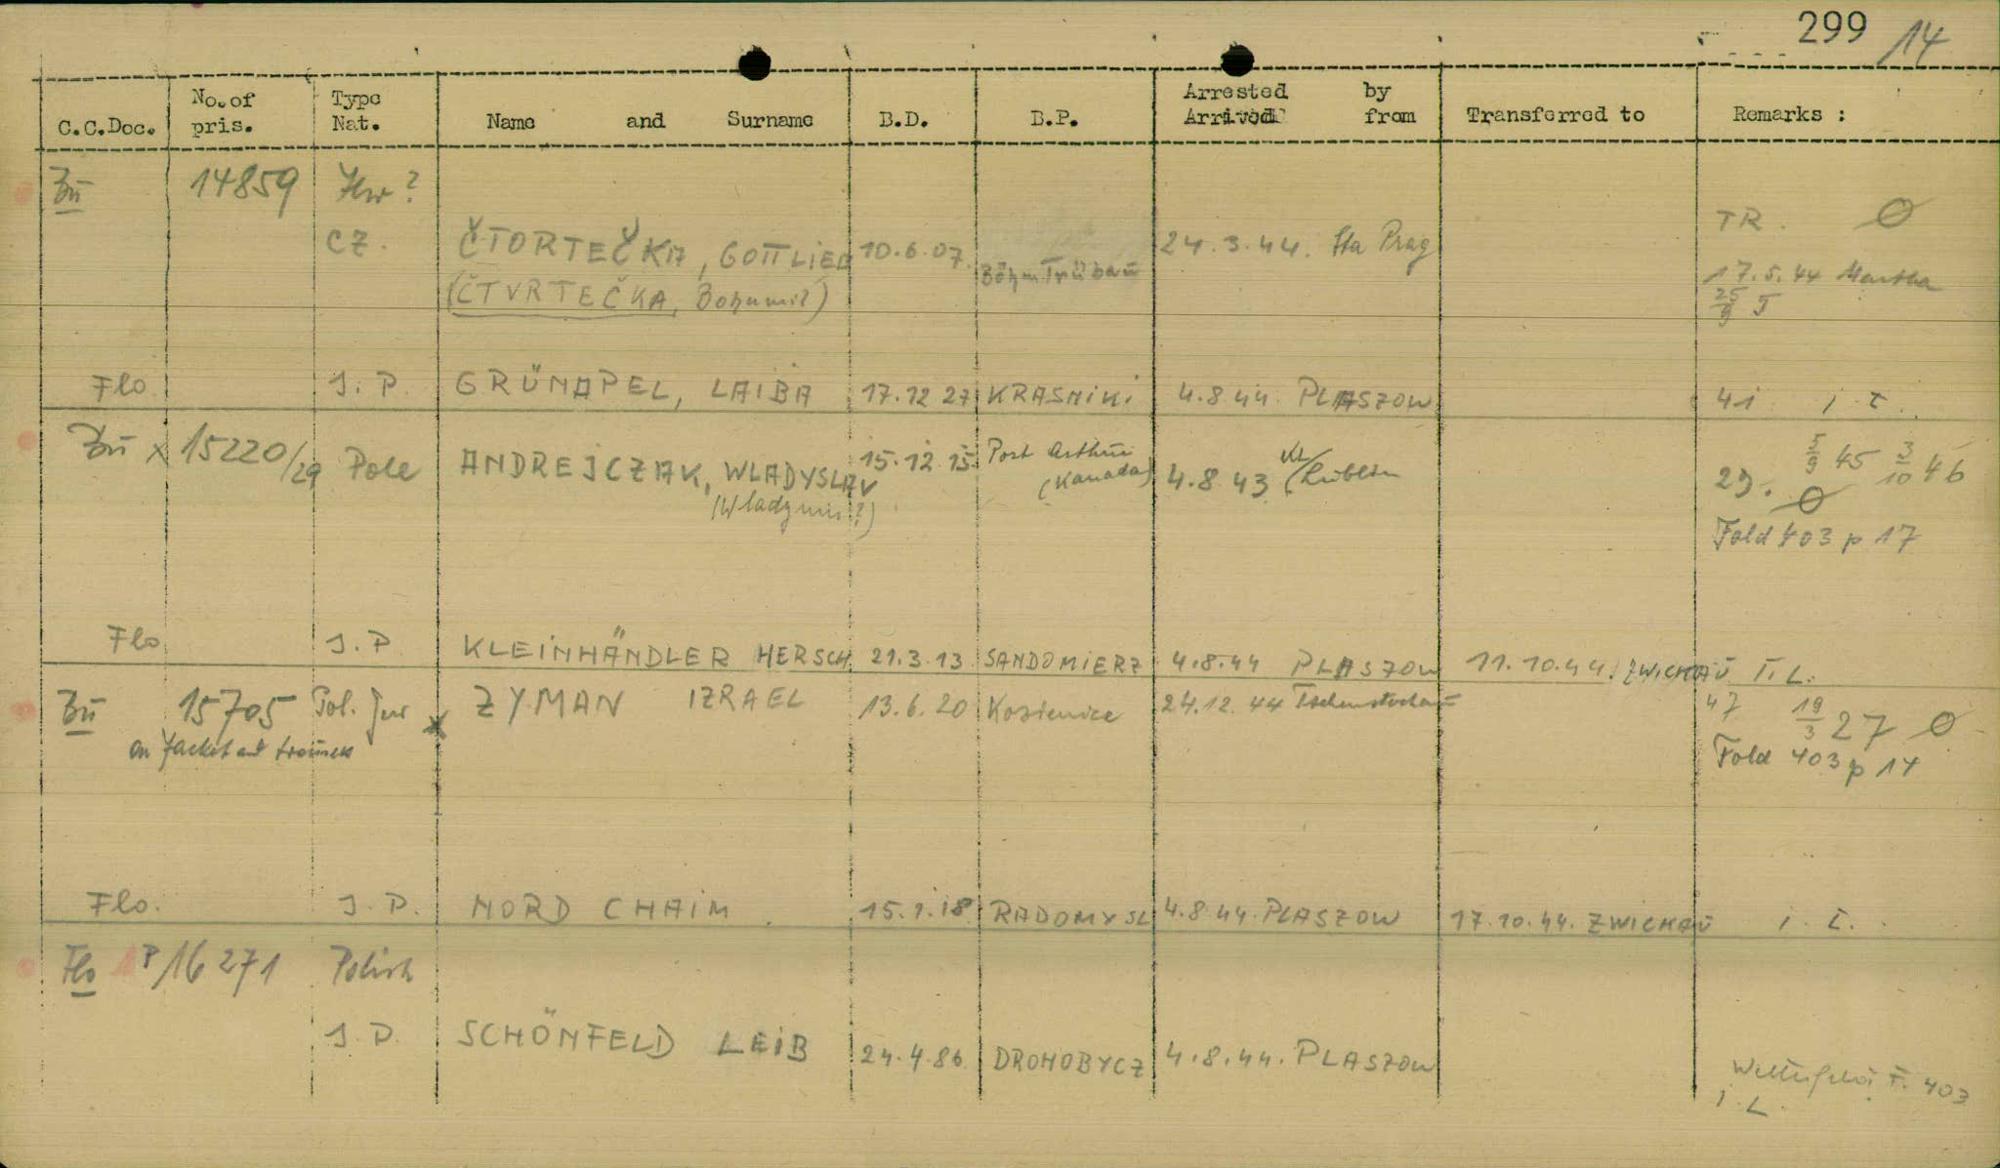 299 14
C.C.Doc. No. of pris. Type Nat. Name and Surname B.D. B.P. Arrested by Arrived from Transferred to Remarks :
Bū 14859 ?
CZ. ČTORTEČKA, GOTTLIEB 10.6.07. Böhm Trübau 24.3.44. Sta Prag TR. Ø
(ČTVRTEČKA, Bohumil) 17.5.44 Martha
25/9 J
Flo J. P. GRÜNAPEL, LAIBA 17.12 27 KRASNIKI 4.8 44. PLASZOW
Bū x 15220/29 Pole ANDREJCZAK, WLADYSLAV 15.12.15 Port Arthur (Kanada) 4.8.43 KL Lublin 29. 5/9 45 3/10 46
Ø
Fold 403 p 17
Flo J. P KLEINHÄNDLER HERSCH 21.3.13 SANDOMIERZ 4.8.44 PLASZOW 11.10.44. ZWICKAU I. L.
Bū 15705 Pol. Jew x ZYMAN IZRAEL 13.6.20 Kozienice 24.12.44 Tschenstochau 47 19/3 27 Ø
on Jacket and trousers Fold 403 p 14
Flo. J. P. NORD CHAIM 15.1.18 RADOMYSL 4.8.44. PLASZOW 17.10.44. ZWICKAU I. L.
Flo P/16271 Polish
J. P. SCHÖNFELD LEIB 24.4.86 DROHOBYCZ 4.8.44. PLASZOW
F. 403
I. L.